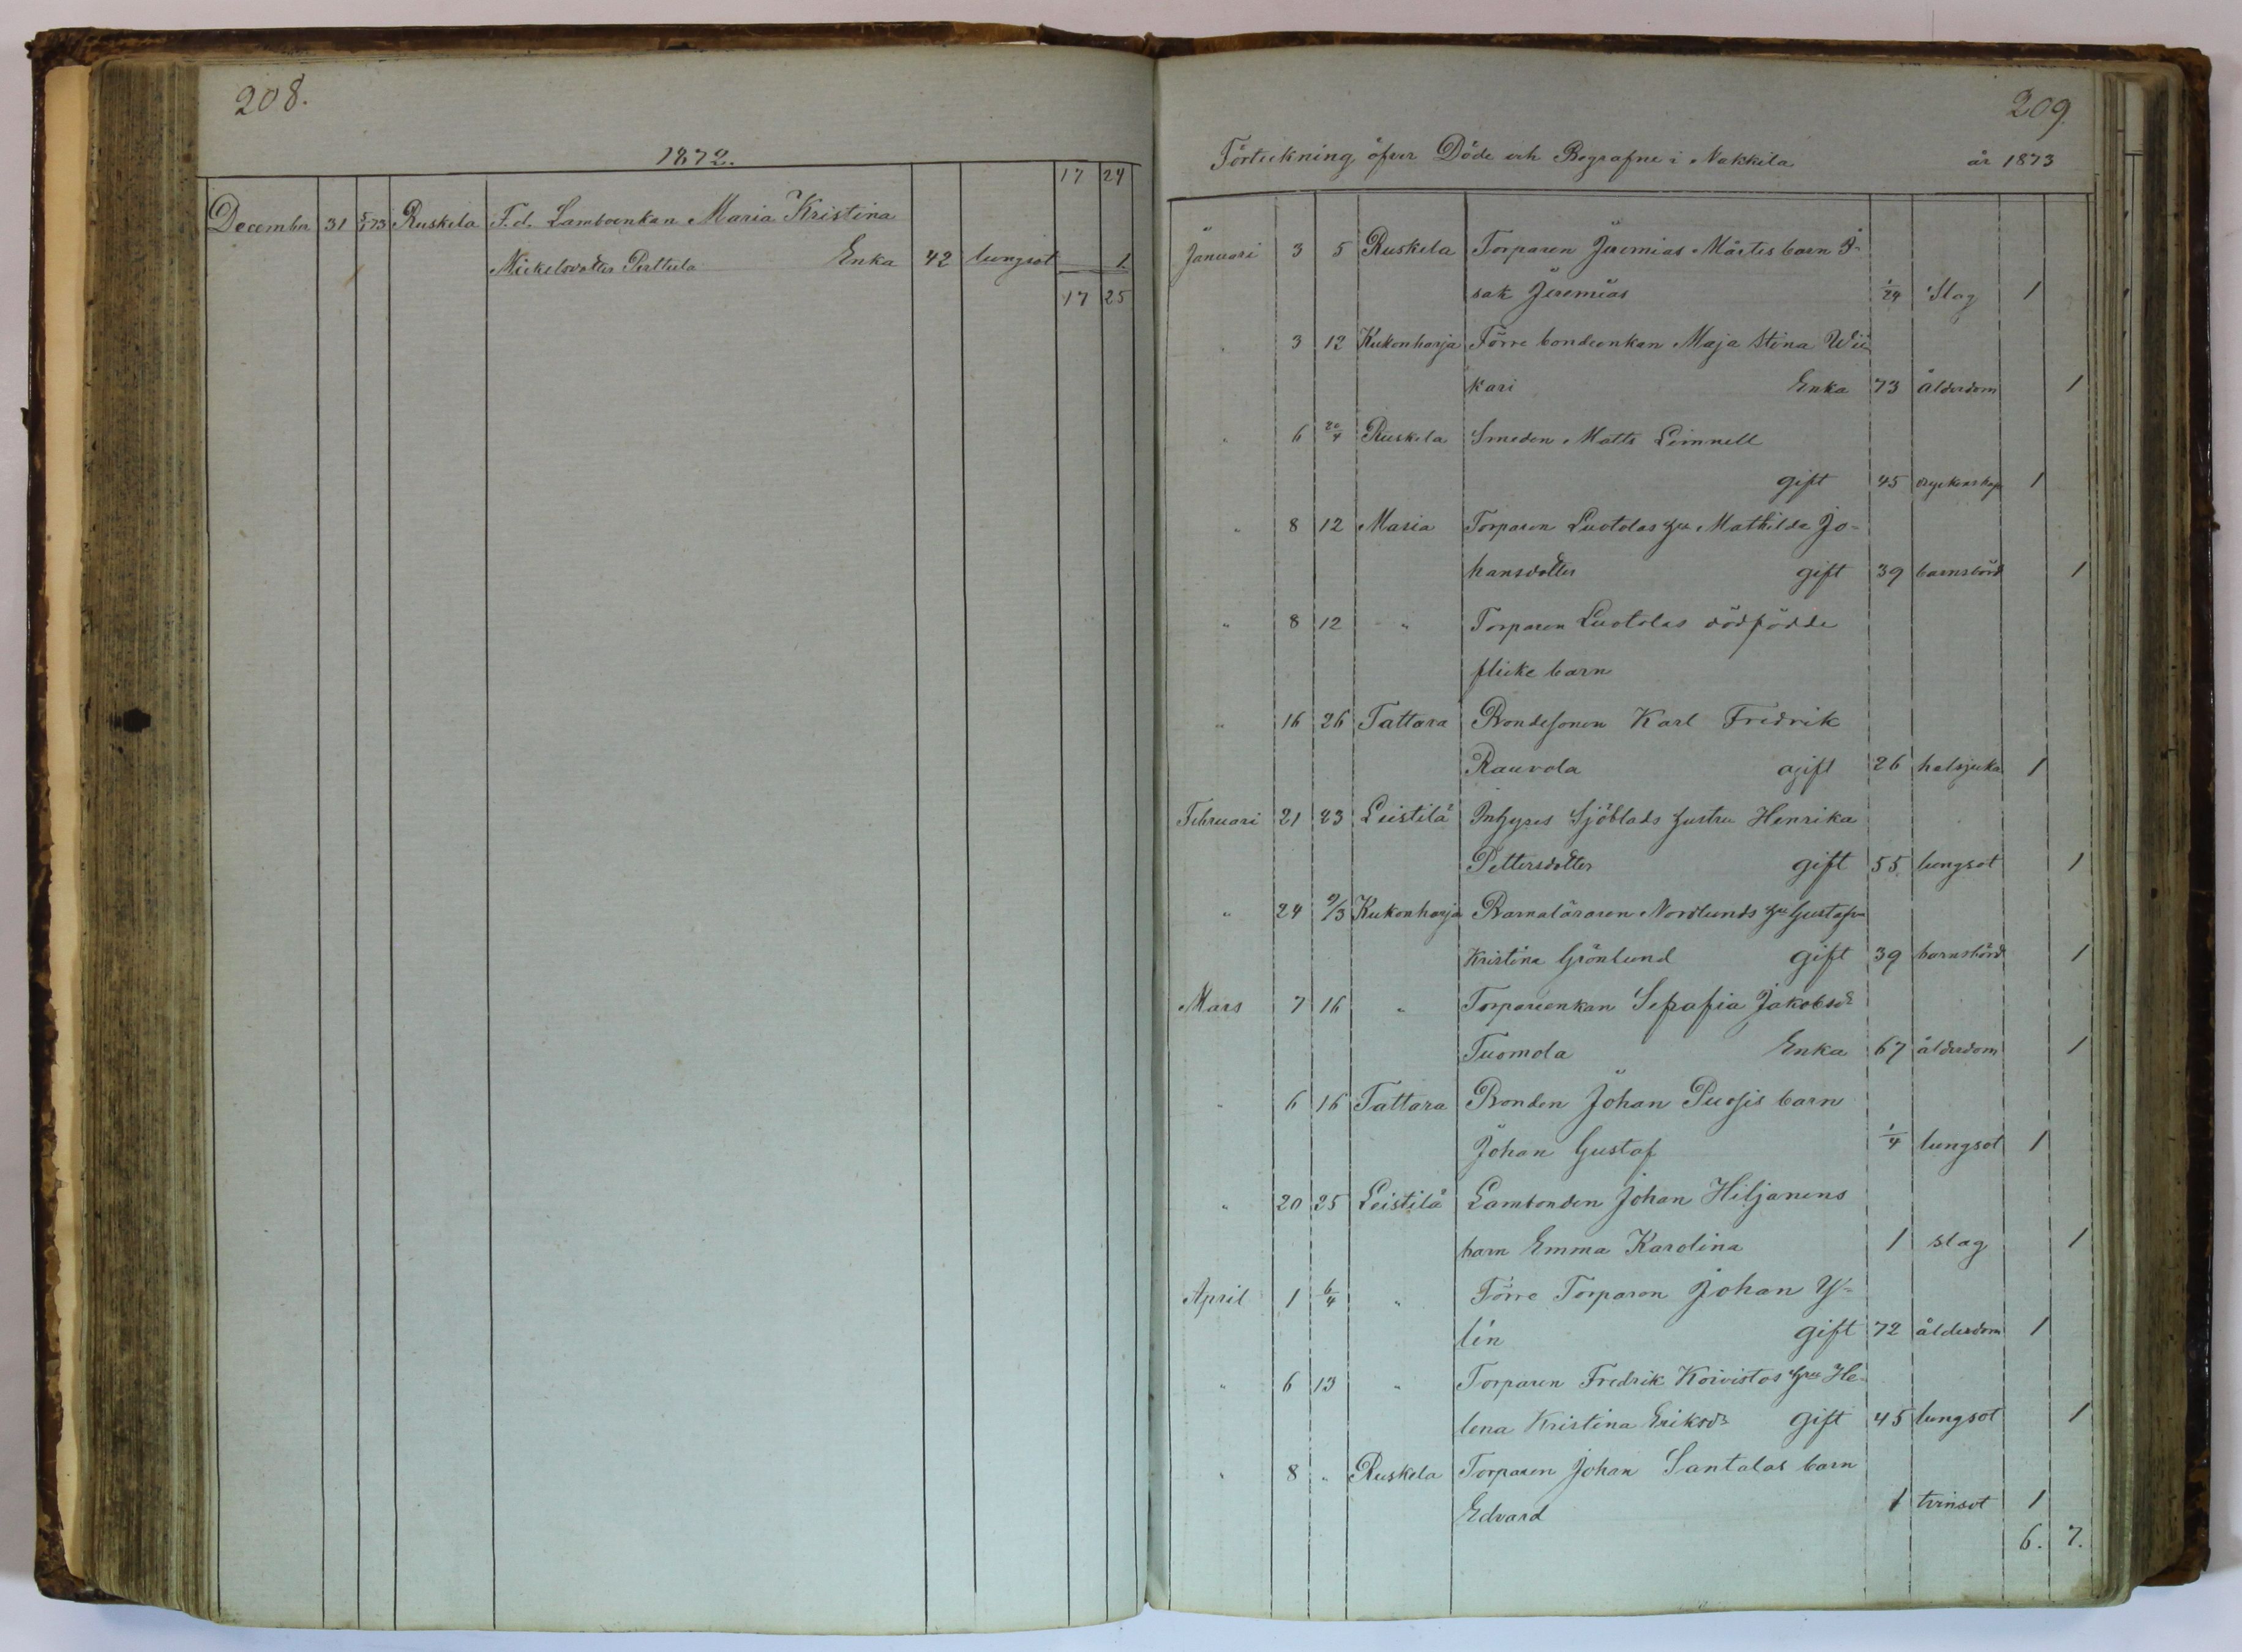 208.
1872.
17 24
December 31 5/1 73 Ruskela F.d. Lamboenkan Maria Kristina
Mickelsdotter Perttula Enka 42 lungsot 1.
17 25
209
Förteckning öfver Döde och Begrafne i Nakkila år 1873
Januari 3 5 Ruskela Torparen Jeremias Märtis barn I-
sak Jeremias 1/24 Slag 1
3 12 Kukonharja Förre bondeenkan Maja Stina Wii-
kari Enka 73 ålderdom 1
" 6 20/4 Ruskela Smeden Matts Limnell
gift 45 dryckenskap 1
" 8 12 Masia Torparen Luotolas hu Mathilda Jo-
hansdotter gift 39 barnsbörd 1
" 8 12 " Torparen Luotolas dödfödde
flicke barn
" 16 26 Tattara Bondesonen Karl Fredrik
Rauvola ogift 26 halsjuka 1
Februari 21 23 Leistilä Inhyses Sjöblads hustru Henrika
Pettersdotter gift 55 lungsot 1
" 24 9/3 Kukonharja Barnaläraren Nordlunds hu Gustafva
Kristina Grönlund gift 39 barnsbörd 1
Mars 7 16 " Torpareenkan Serafia Jakobsdr
Tuomola Enka 67 ålderdom 1
" 6 16 Tattara Bonden Johan Puosis barn
Johan Gustaf 1/4 lungsot 1
" 20 25 Leistilä Lambonden Johan Hiljanens
barn Emma Karolina 1 slag 1
April 1 6/4 " Förre Torparen Johan Y-
lin gift 72 ålderdom 1
" 6 13 " Torparen Fredrik Koivistos hu He-
lena Kristina Eriksdr gift 45 lungsot 1
" 8 " Ruskela Torparen Johan Santalas barn
Edvard 1 tvinsot 1
6. 7.